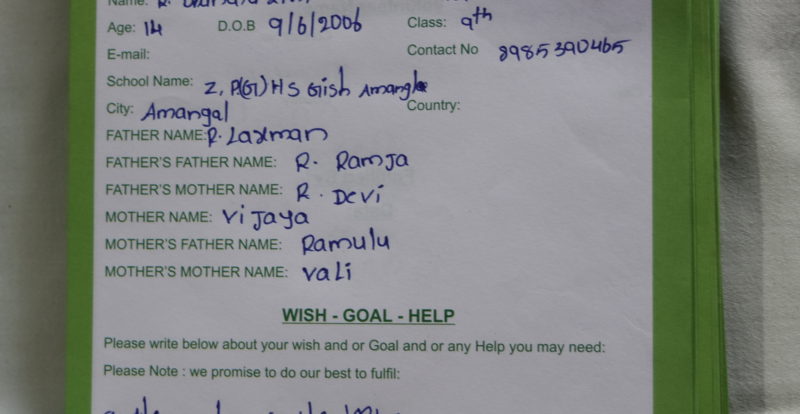 Name: R.
Age: 14 D.O.B 9/6/2006 Class: 9th
E-mail: Contact No 8985390465
School Name: Z, P(G) H S Girls Amangl
City: Amangal Country:
FATHER NAME: R. Laxman
FATHER'S FATHER NAME: R. Ramja
FATHER'S MOTHER NAME: R. Devi
MOTHER NAME: Vijaya
MOTHER'S FATHER NAME: Ramulu
MOTHER'S MOTHER NAME: Vali
WISH - GOAL - HELP
Please write below about your wish and or Goal and or any Help you may need:
Please Note : we promise to do our best to fulfil: